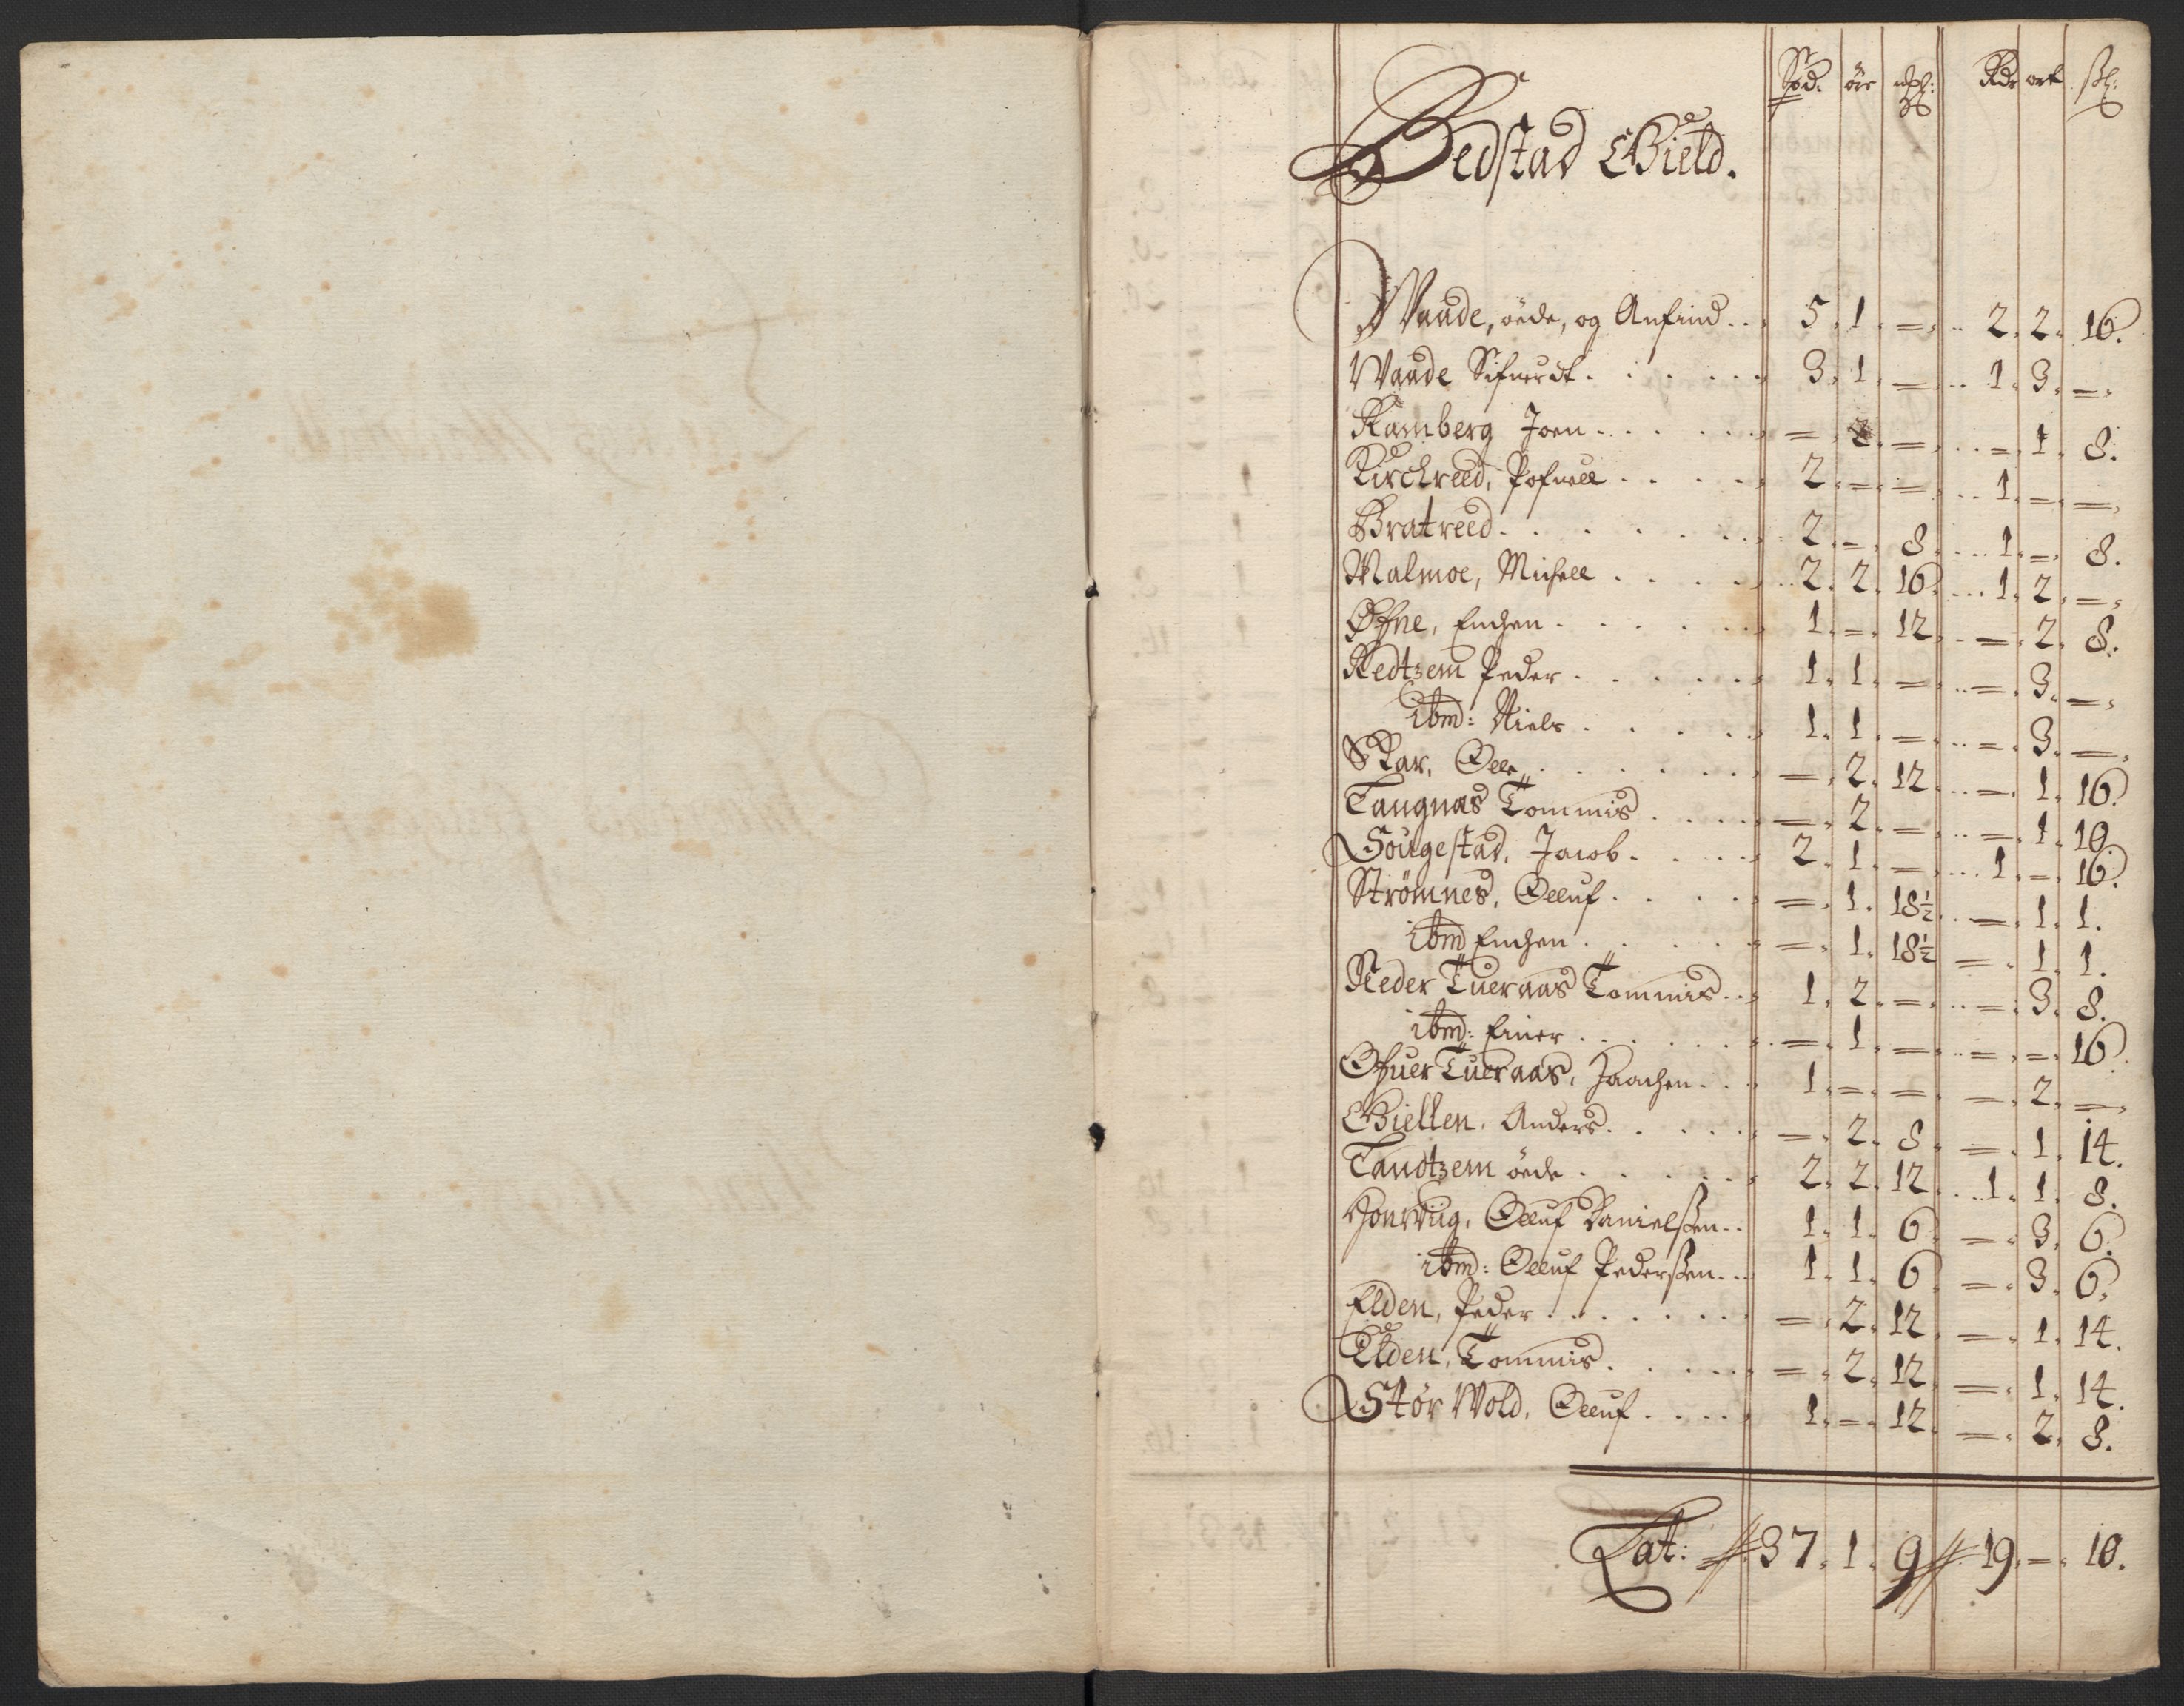 Spd. øre mkl: Rdr ort ſkl:
Bedstad Gield.
Waade, øede, og Anfind . . 5. 1. = . . 2. 2. 16.
Waade Sifuerdt . . . . . 3. 1. = . . 1. 3. =.
Ramberg Joen . . . . . = . 2. = . . = . 1. 8.
Kirckreed, Pofuell . . . . 2. = . = . . 1. = . =.
Bratreed . . . . . . 2. = . 8. . . 1. = . 8.
Malmoe, Michell . . . . 2. 2. 16. . . 1. 2. =.
Øfne, Enchen . . . . 1. = . 12. . = . 2. 8.
Redtzem Peder . . . . . 1. 1. = . . = . 3. =.
ibm: Niels . . . . . 1. 1. = . . = . 3. =.
Skar, Olle . . . . . . = . 2. 12. . = . 1. 16.
Tangnæs Tommis . . . . = . 2. = . . = . 1. 10.
Sougestad, Jacob . . . . 2. 1. = . . 1. = . 16.
Strømnes, Oeluf . . . . = . 1. 18½ . = . 1. 1.
ibm Enchen . . . . . = . 1. 18½ = . 1. 1.
Neder Tueraas Tommis . . 1. 2. = . . = . 3. 8.
ibm: Einer . . . . . . = . 1. = . . = . = . 16.
Ofuer Tueraas, Haachen . . . 1. = . = . = . 2. =.
Giellen, Anders . . . . . = . 2. 8. = . 1. 14.
Tandtzem øede . . . . . 2. 2. 12 . . 1. 1. 8.
Honwug, Oeluf Danielſsen . . 1. 1. 6. = . 3. 6.
ibm: Oeluf Pederſsen . . . 1. 1. 6. = . 3. 6.
Elden, Peder . . . . . . . = . 2. 12. = . 1. 14.
Elden, Tommis . . . . . = . 2. 12. = . 1. 14.
Stor Wold, Oeluf . . . . 1. = . 12. = . 2. 8.
Lat: 37. 1. 9 19. = . 10.